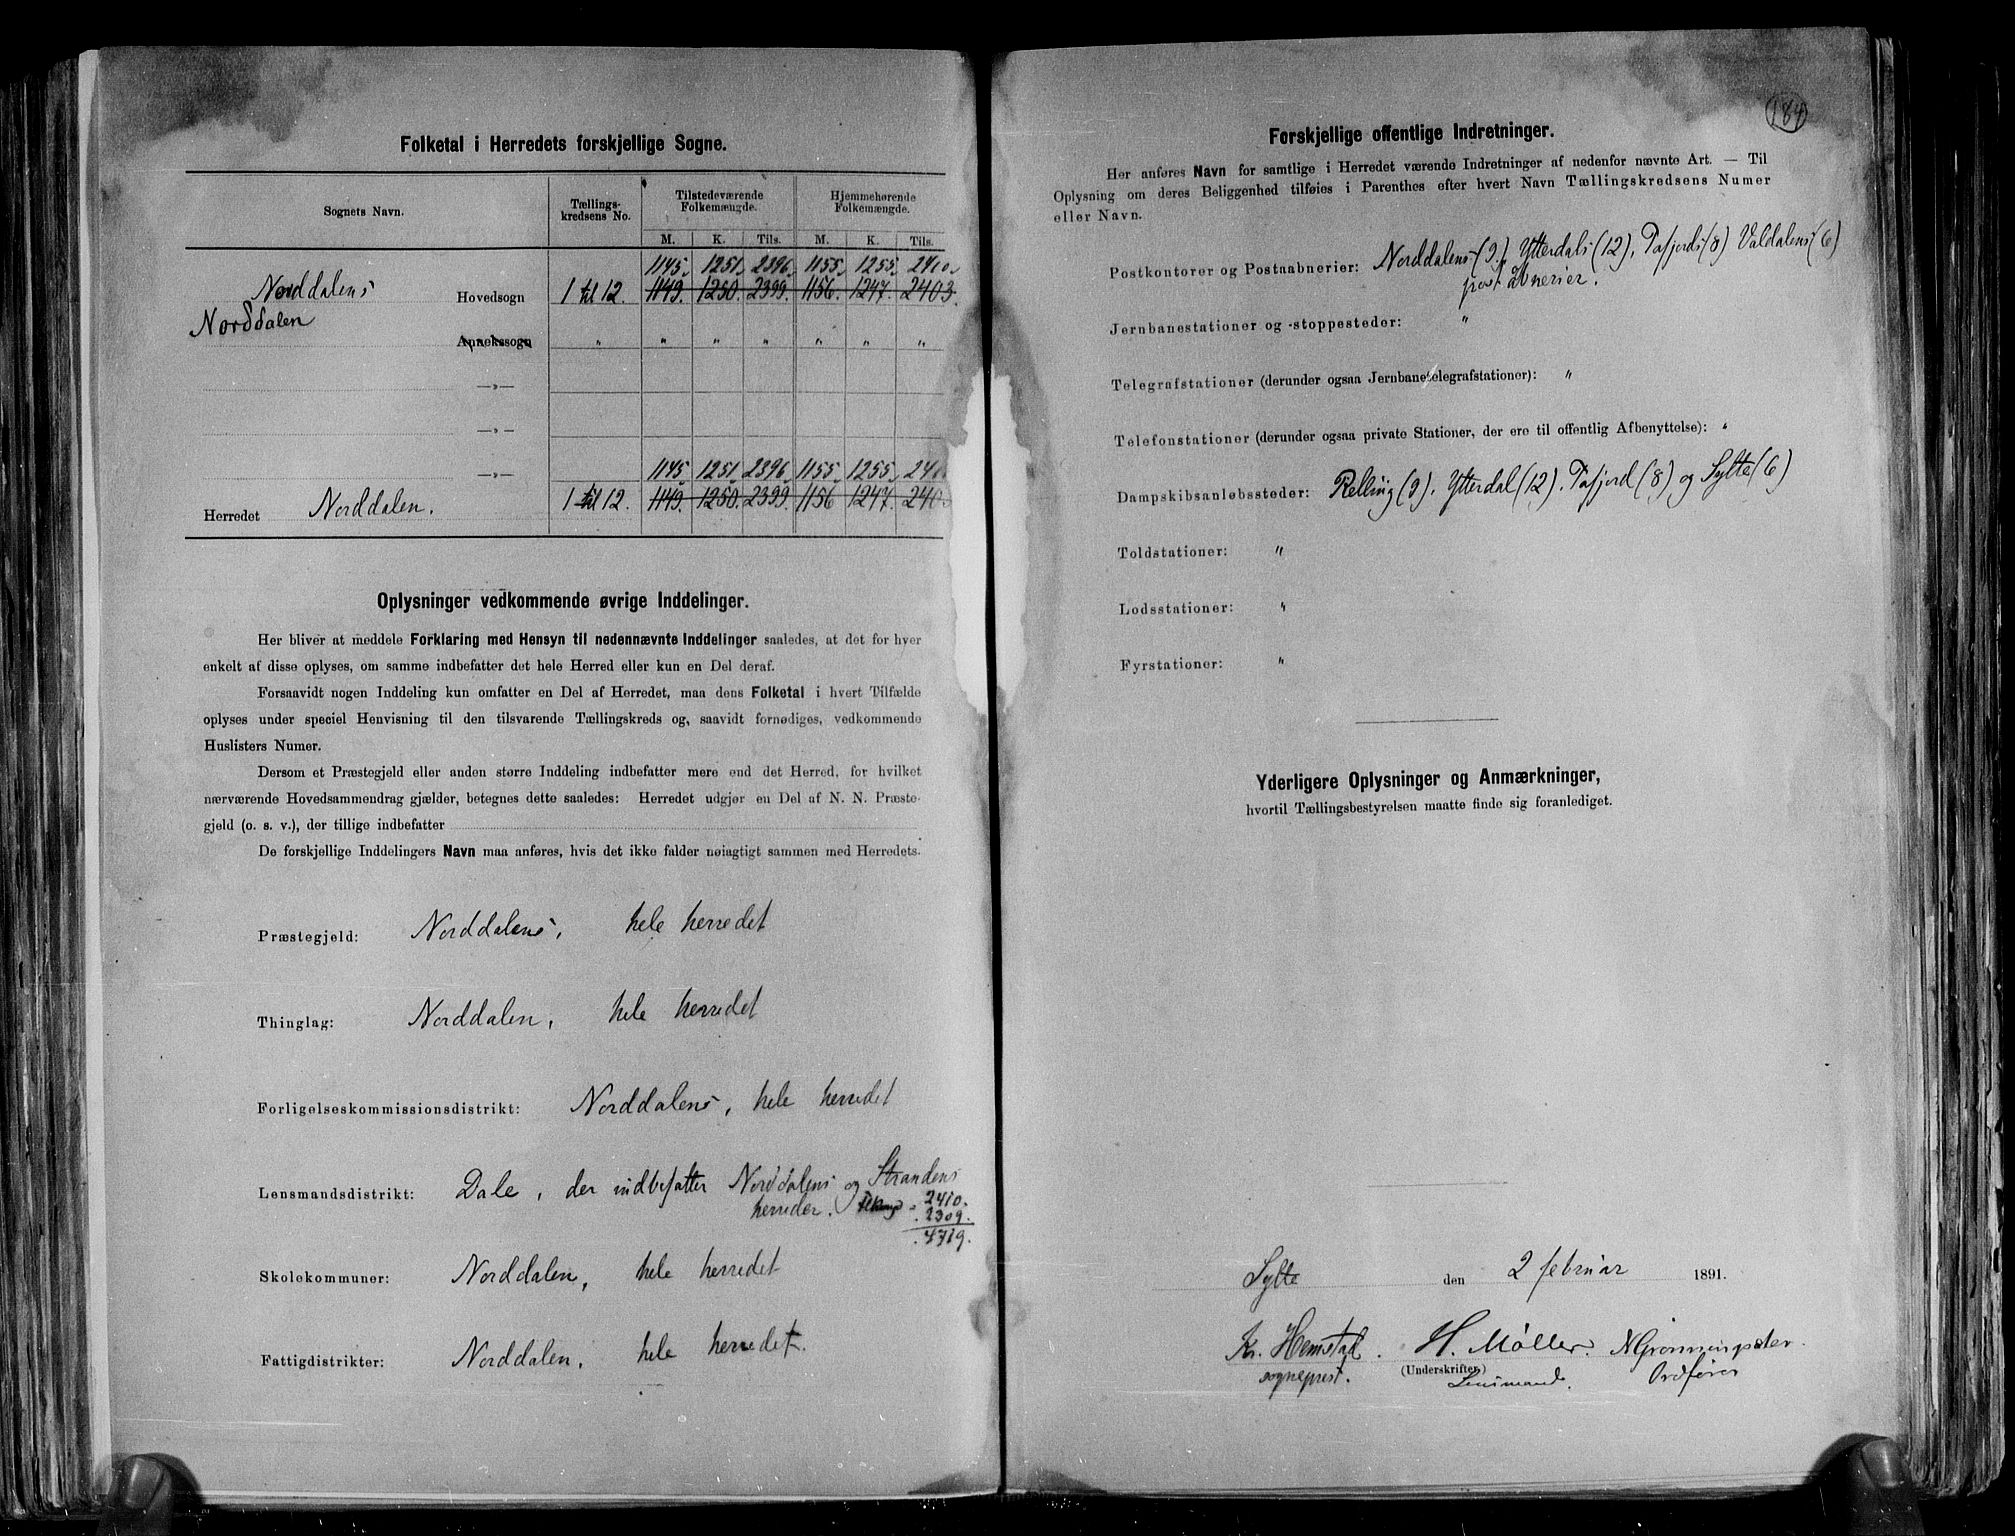 Folketal i Herredets forskjellige Sogne.
Sognets Navn. Tællings-kredsens No. Tilstedeværende Folkemængde. Hjemmehørende Folkemængde.
M. K. Tils. M. K. Tils.
1145. 1251. 2396. 1155. 1255. 2410.
Norddalens Hovedsogn 1 til 12. 1149. 1250. 2399. 1156. 1247. 2403.
Norddalen
Annekssogn " " " " " " "
—„—
—„—
1145. 1251. 2396. 1155. 1255. 2410
—„—
Herredet Norddalen. 1 til 12. 1149. 1250. 2399. 1156. 1247. 2403
Oplysninger vedkommende øvrige Inddelinger.
Her bliver at meddele Forklaring med Hensyn til nedennævnte Inddelinger saaledes, at det for hver
enkelt af disse oplyses, om samme indbefatter det hele Herred eller kun en Del deraf.
Forsaavidt nogen Inddeling kun omfatter en Del af Herredet, maa dens Folketal i hvert Tilfælde
oplyses under speciel Henvisning til den tilsvarende Tællingskreds og, saavidt fornødiges, vedkommende
Huslisters Numer.
Dersom et Præstegjeld eller anden større Inddeling indbefatter mere end det Herred, for hvilket
nærværende Hovedsammendrag gjælder, betegnes dette saaledes: Herredet udgjør en Del af N. N. Præste-
gjeld (o. s. v.), der tillige indbefatter
De forskjellige Inddelingers Navn maa anføres, hvis det ikke falder nøiagtigt sammen med Herredets.
Præstegjeld: Norddalens, hele herredet
Thinglag: Norddalen, hele herredet
Forligelseskommissionsdistrikt: Norddalens, hele herredet
Lensmandsdistrikt: Dale, der indbefatter Norddalens og Strandens
herreder. 2410.
2309.
4719.
Skolekommuner: Norddalen, hele herredet
Fattigdistrikter: Norddalen, hele herredet.
184
Forskjellige offentlige Indretninger.
Her anføres Navn for samtlige i Herredet værende Indretninger af nedenfor nævnte Art. — Til
Oplysning om deres Beliggenhed tilføies i Parenthes efter hvert Navn Tællingskredsens Numer
eller Navn.
Postkontorer og Postaabnerier: Norddalens (9), Ytterdals (12), Tafjords (8) Valdalens (6)
postabnerier.
Jernbanestationer og -stoppesteder: "
Telegrafstationer (derunder ogsaa Jernbanetelegrafstationer): "
Telefonstationer (derunder ogsaa private Stationer, der ere til offentlig Afbenyttelse): "
Dampskibsanløbssteder: Relling (9), Ytterdal (12), Tafjord (8) og Sylte (6)
Toldstationer: "
Lodsstationer: "
Fyrstationer: "
Yderligere Oplysninger og Anmærkninger,
hvortil Tællingsbestyrelsen maatte finde sig foranlediget.
Sylte den 2 februar 1891.
Kr. Hemstad. H. Møller. N Grønningsæter.
(Underskrifter)
sogneprest. Lensmand. Ordfører